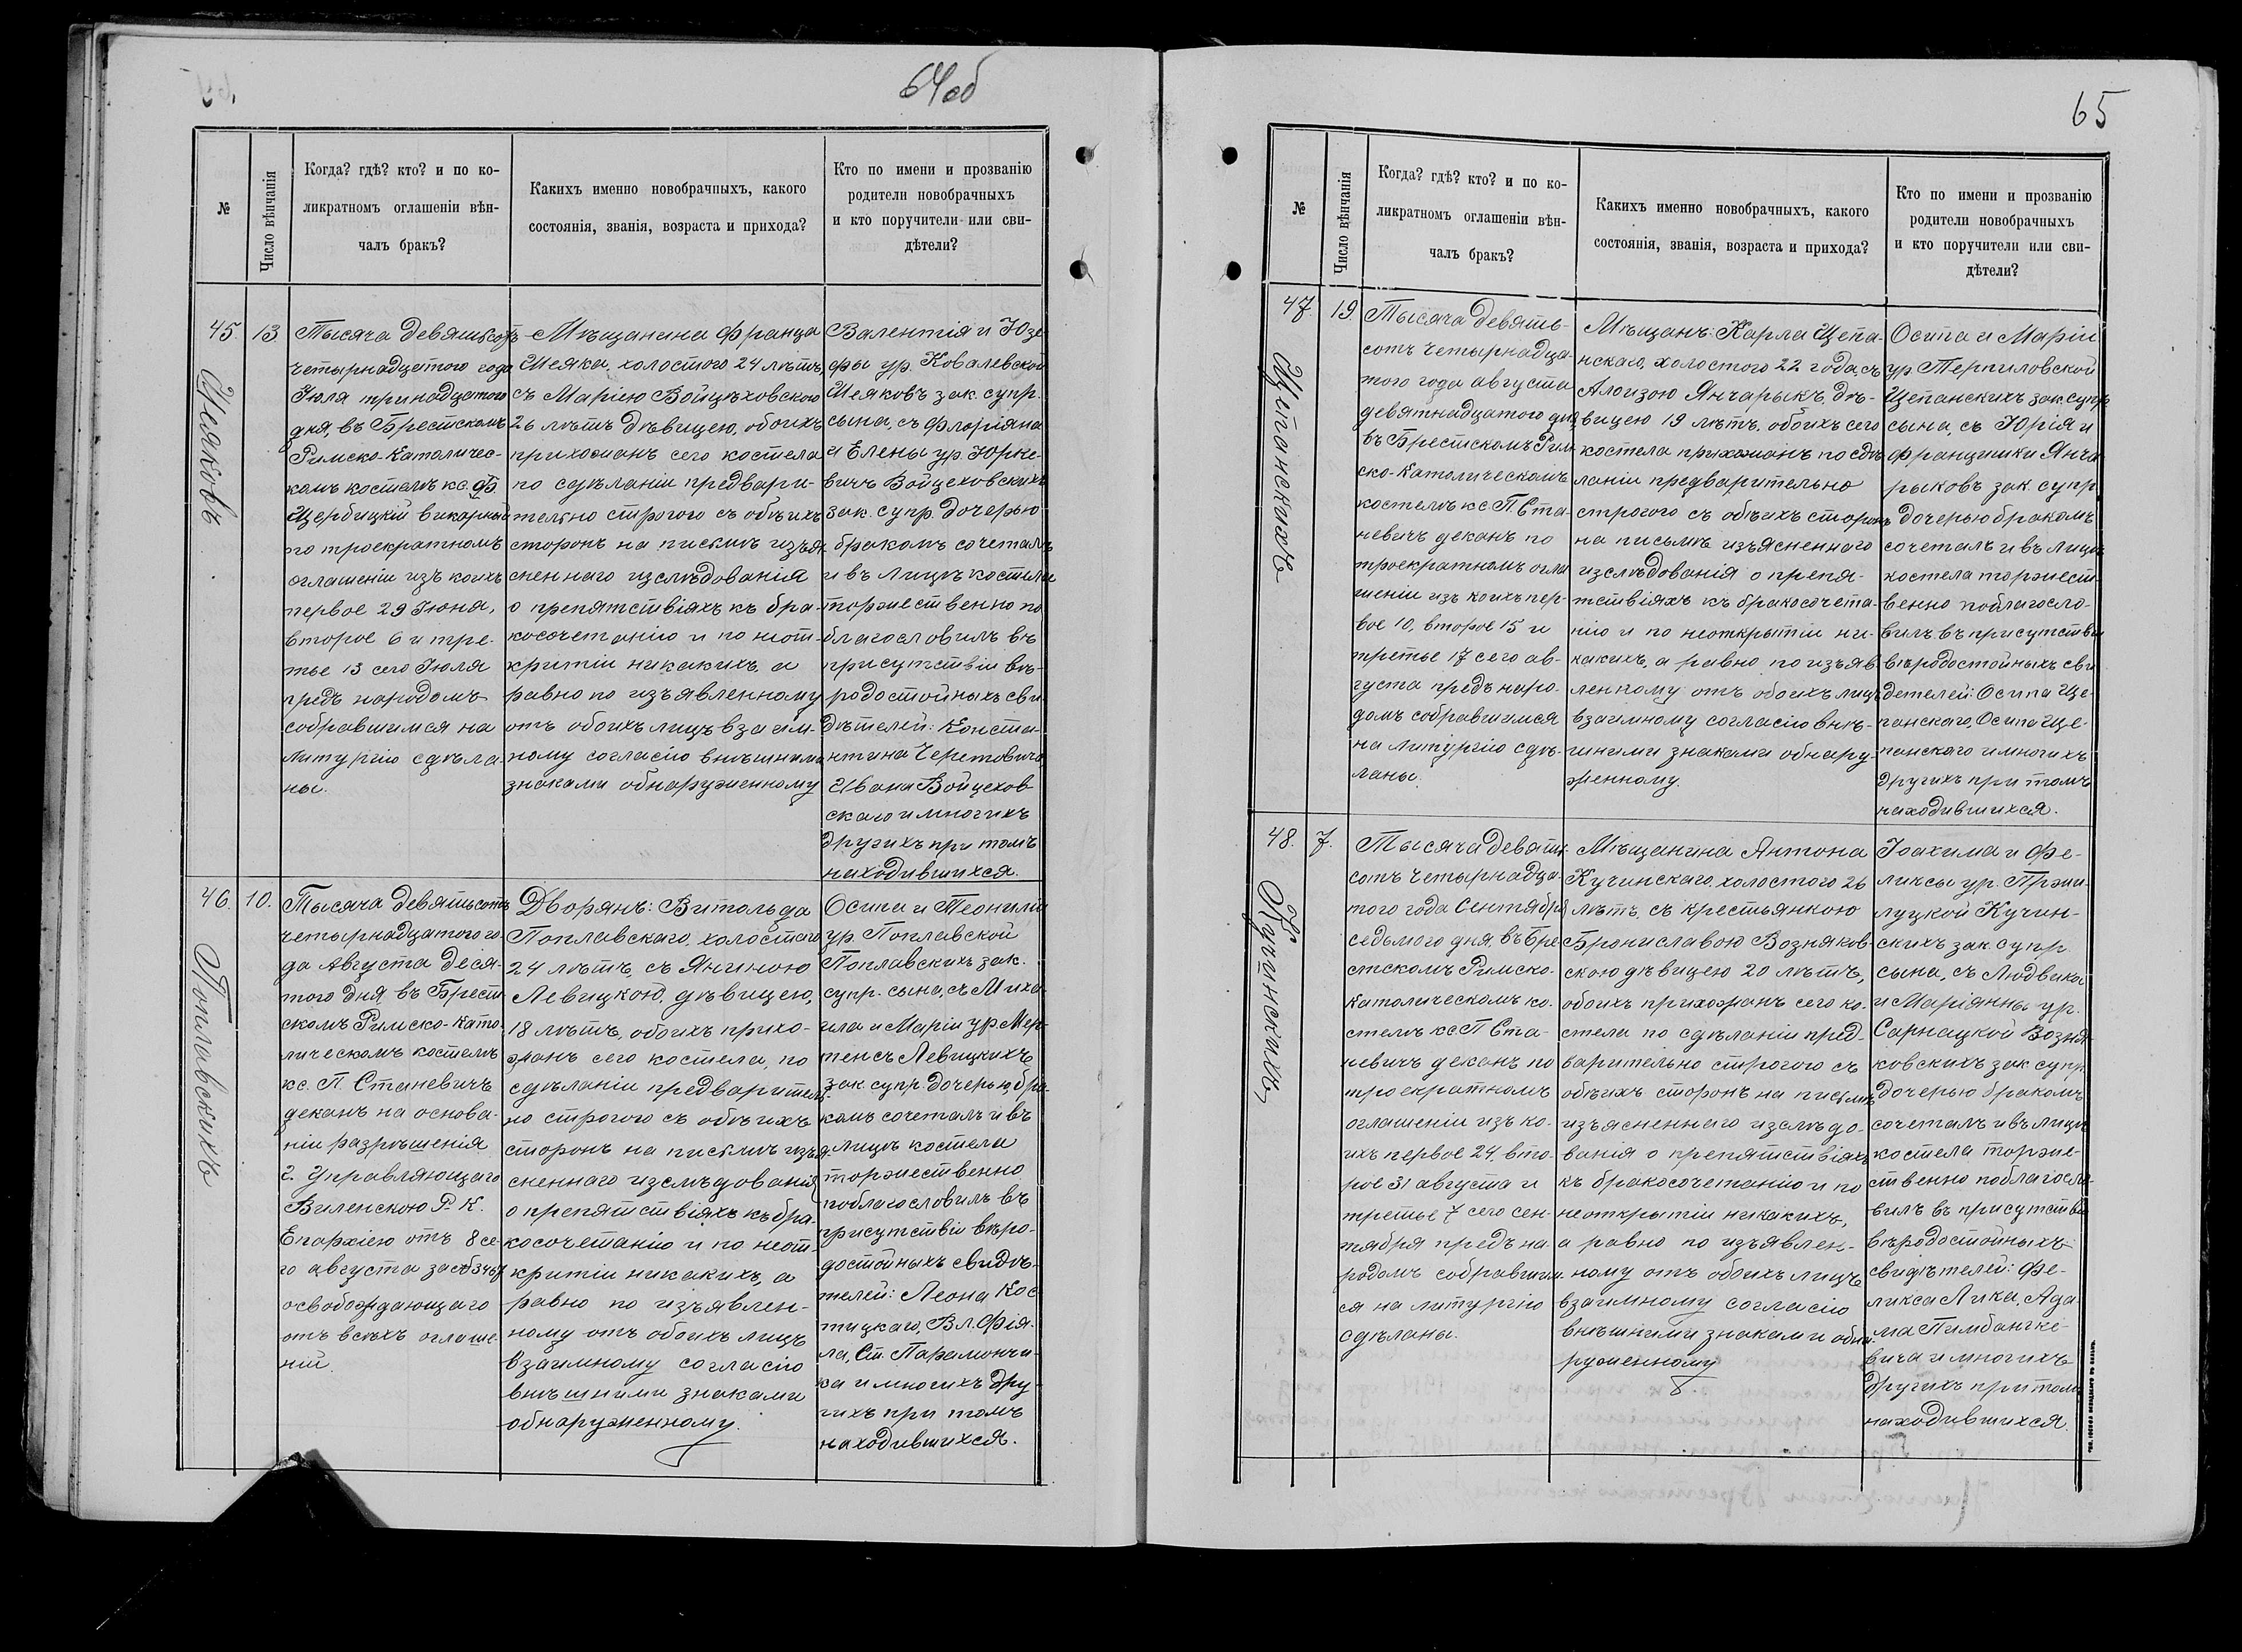 64об
№
Число вѣнчанія
Когда? гдѣ? кто? и по ко-
ликратномъ оглашеніи вѣн-
чалъ бракъ?
Какихъ именно новобрачныхъ, какого
состоянія, званія, возраста и прихода?
Кто по имени и прозванію
родители новобрачныхъ
и кто поручители или сви-
дѣтели?
45.
Шеяковъ
13
Тысяча девятьсотъ
четырнадцатого года
Іюля тринадцатого
дня, въ Брестскомъ
Римско-Католичес-
комъ костелѣ кс. Ф.
Щербицкій викарный
по троекратномъ
оглашеніи изъ коихъ
первое 29 Іюня,
второе 6 и тре-
тье 13 сего Іюля
предъ народомъ
собравшимся на
литургію сдѣла-
ны.
Мѣщанина Франца
Шеяка, холостого 24 лѣтъ,
съ Маріею Войцѣховскою
26 лѣтъ дѣвицею, обоихъ
прихожанъ сего костела
по сдѣланіи предвари-
тельно строгого съ обѣихъ
сторонъ на письмѣ изъя-
сненнаго изслѣдованія
о препятствіяхъ къ бра-
косочетанію и по неот-
критіи никакихъ, а
равно по изъявленному
отъ обоихъ лицъ взаим-
ному согласію внѣшними
знаками обнаруженному
Валентія и Юзе-
фы ур. Ковалевской
Шеяковъ зак. супр.
сына, съ Флоріяна
и Елены ур. Юрке-
вичъ Войцеховскихъ
зак. супр. дочерью
бракомъ сочеталъ
и въ лицѣ костела
торжественно по
благословилъ въ
присутствіи вѣ-
родостойныхъ сви-
дѣтелей: Конста-
нтина Черетовича,
Ивана Войцехов-
скаго и многихъ
другихъ при томъ
находившихся.
46.
Поплавскихъ
10.
Тысяча девятьсотъ
четырнадцатого го-
да Августа деся-
того дня, въ Брест-
скомъ Римско-Като-
лическомъ костелѣ
кс. П. Станевичъ
деканъ на основа-
ніи разрѣшенія
г. Управляющаго
Виленскою Р. К.
Епархіею отъ 8 се-
го августа за № 3467
освобождающаго
отъ всѣхъ оглаше-
ній.
Дворянъ: Витольда
Поплавскаго, холостаго
24 лѣтъ, съ Яниною
Левицкою, дѣвицею,
18 лѣтъ, обоихъ прихо-
жанъ сего костела, по
сдѣланіи предваритель-
но строгого съ обѣихъ
сторонъ на письмѣ изъя-
сненнаго изслѣдованія
о препятствіяхъ къ бра-
косочетанію и по неот-
критіи никакихъ, а
равно по изъявлен-
ному отъ обоихъ лицъ
взаимному согласію
внѣшними знаками
обнаруженному.
Осипа и Теонили
ур. Поплавской
Поплавскихъ зак.
супр. сына, съ Миха-
ила и Маріи ур. Мер-
тенсъ Левицкихъ
зак. супр. дочерью, бра-
комъ сочеталъ и въ
лицѣ костела
торжественно
поблагословилъ въ
присутствіи вѣро-
достойныхъ свидѣ-
телей: Леона Кос-
тицкаго, Вл. Фія-
ла, Ст. Парамончи-
ка и многихъ дру-
гихъ при томъ
находившихся.
65
№
Число вѣнчанія
Когда? гдѣ? кто? и по ко-
ликратномъ оглашеніи вѣн-
чалъ бракъ?
Какихъ именно новобрачныхъ, какого
состоянія, званія, возраста и прихода?
Кто по имени и прозванію
родители новобрачныхъ
и кто поручители или сви-
дѣтели?
47.
Щепанскихъ
19.
Тысяча девять-
сотъ четырнадца-
того года августа
девятнадцатого дня,
въ Брестскомъ Рим-
ско-Католическомъ
костелѣ кс. П. Ста-
невичъ деканъ по
троекратномъ огла
шеніи изъ коихъ пер-
вое 10, второе 15 и
третье 17 сего ав-
густа предъ наро-
домъ собравшимся
на литургію сдѣ-
ланы.
Мѣщанъ: Карла Щепа-
нскаго, холостого 22 года, съ
Алоизою Янчарыкъ, дѣ-
вицею 19 лѣтъ, обоихъ сего
костела прихожанъ по сдѣ
ланіи предварительно
строгого съ обѣихъ сторонъ
на письмѣ изъясненнаго
изслѣдованія о препя-
тствіяхъ къ бракосочета-
нію и по неоткрытіи ни-
какихъ, а равно по изъяв
ленному отъ обоихъ лицъ
взаимному согласію внѣ-
шними знаками обнару-
женному.
Осипа и Маріи
ур. Терпиловской
Щепанскихъ зак. супр.
сына, съ Юрія и
Францишки Янча-
рыковъ зак. супр.
дочерью бракомъ
сочеталъ и въ лицѣ
костела торжест-
венно поблагосло-
вилъ въ присутствіи
вѣродостойныхъ сви
детелей: Осипа Ще-
панскаго, Осипа Ще-
панскаго и многихъ
другихъ при томъ
находившихся.
48.
Кучинскихъ
7.
Тысяча девять-
сотъ четырнадца-
того года Сентября
седьмого дня, въ Бре-
стскомъ Римско-
Католическомъ ко-
стелѣ кс. П. Ста-
невичъ деканъ по
троекратномъ
оглашеніи изъ ко-
ихъ первое 24, вто-
рое 31 августа и
третье 7 сего сен-
тября предъ на-
родомъ собравшим-
ся на литургію
сдѣланы.
Мѣщанина Антона
Кучинскаго, холостого 26
лѣтъ, съ крестьянкою
Брониславою Возняков-
скою дѣвицею 20 лѣтъ,
обоихъ прихожанъ сего ко-
стела по сдѣланіи пред-
варительно строгого съ
обѣихъ сторонъ на письмѣ
изъясненнаго изслѣдо-
ванія о препятствіяхъ
къ бракосочетанію и по
неоткрытіи никакихъ,
а равно по изъявлен-
ному отъ обоихъ лицъ
взаимному согласію
внѣшними знаками обна-
руженному
Іоахима и Фе-
ликсы ур. Пржи-
луцкой Кучин-
скихъ зак. супр.
сына, съ Людвика
и Маріянны ур.
Сарнацкой Возня-
ковскихъ зак. супр.
дочерью бракомъ
сочеталъ и въ лицѣ
костела торже-
ственно поблагосло-
вилъ въ присутствіи
вѣродостойныхъ
свидѣтелей: Фе-
ликса Лика, Ада-
ма Пимбангке-
вича и многихъ
другихъ при томъ
находившихся.